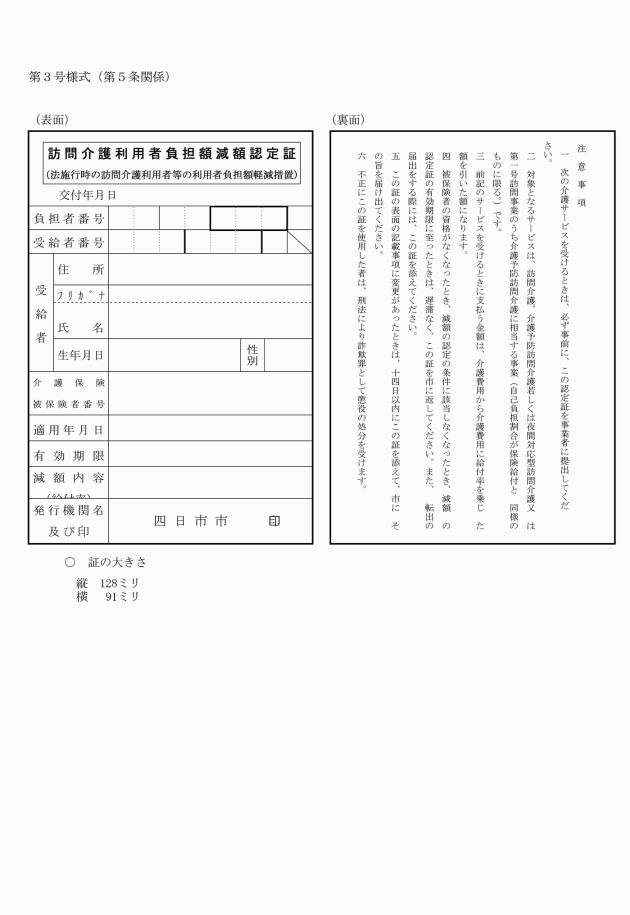 第３号様式（第５条関係）
（表面）
訪問介護利用者負担額減額認定証
（法施行時の訪問介護利用者等の利用者負担額軽減措置）
交付年月日
負担者番号
受給者番号
受給者
住　所
フリガナ
氏　名
生年月日
性別
介護保険
被保険者番号
適用年月日
有効期限
減額内容
（給付率）
発行機関名
及び印
四日市市　　印
（裏面）
注意事項
一　次の介護サービスを受けるときは、必ず事前に、この認定証を事業者に提出してくだ
さい。
二　対象となるサービスは、訪問介護、介護予防訪問介護若しくは夜間対応型訪問介護又　は
第一号訪問事業のうち介護予防訪問介護に相当する事業（自己負担割合が保険給付と　同様の
ものに限る。）です。
三　前記のサービスを受けるときに支払う金額は、介護費用から介護費用に給付率を乗じ　た
額を引いた額になります。
四　被保険者の資格がなくなったとき、減額の認定の条件に該当しなくなったとき、減額　の
認定証の有効期限に至ったときは、遅滞なく、この証を市に返してください。また、　転出の
届出をする際には、この証を添えてください。
五　この証の表面の記載事項に変更があったときは、十四日以内にこの証を添えて、市に　そ
の旨を届け出てください。
六　不正にこの証を使用した者は、刑法により詐欺罪として懲役の処分を受けます。
○　証の大きさ
縦　128ミリ
横　91ミリ